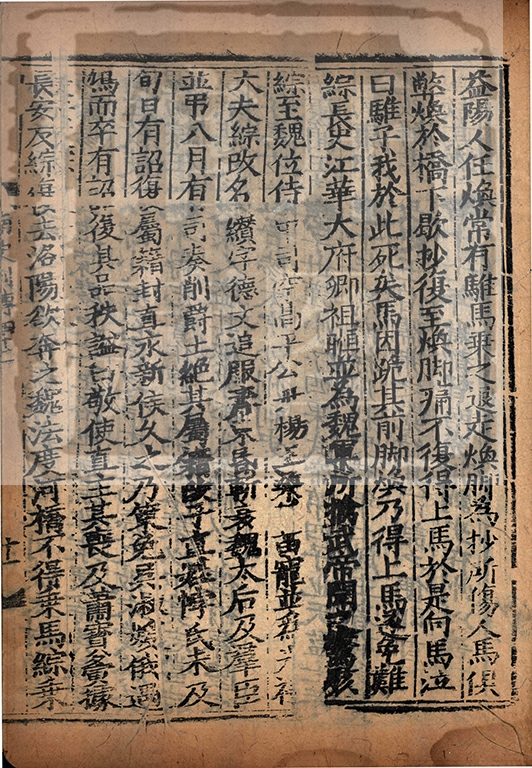 益陽人任煥常有騅馬乗之退走煥脚為抄所傷人馬俱
弊煥於橋下歇抄復至煥脚痛不復得上馬於是向馬泣
曰騅子我於此死矣馬因跪其前脚煥乃得上馬遂免難
綜長史江華太府卿祖暅並為魏軍所擒武帝聞之驚駭
綜至魏位侍中司空高平公丹楊王梁話苗寵並為光禄
大夫綜改名纘字德文追服齊東昏斬衰魏太后及羣臣
並弔八月有司奏削爵土絶其屬籍改子直姓悖氏未及
旬日有詔復屬籍封直永新侯久之乃策免呉淑媛俄遇
鴆而卒有詔復其品秩諡曰敬使直主其喪及蕭寶夤據
長安反綜復去洛陽欲奔之魏法度河橋不得乗馬綜乗
南史列傳四十三
十一